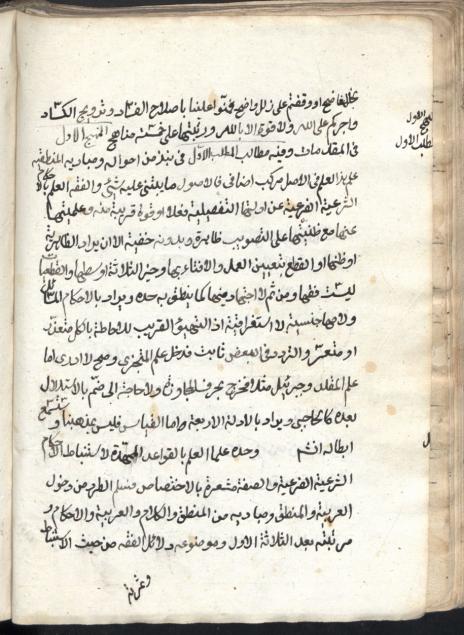 بخلل فاضح او وقفتم على زلل واضح فمنوا علينا باصلاح الفساد وترويج الكساد
واجركم على الله ولا قوة الا بالله ورتبتها على خمسة مناهج المنهج الاول
في المقدمات وفيه مطالب المطلب الاول في نبذ من احواله ومباديه المنطقية
علم هذا العلم في الاصل مركب اضافي فالاصول ما يبتني عليه شيء والفقه العلم بالاحكام
الشرعية الفرعية عن ادلتها التفصيلية فعلا او قوة قريبة منه وعلميتها
عنها مع ظنيتها على التصويب ظاهرة وبدونه خفية الا ان يراد الظاهرية
او ظنها او القطع بتعيين العمل والافتاء بها وخير الثلاثة اوسطها والقطعيات
ليست فقها ومن ثم لا اجتهاد فيها كما ينطق به حده ويراد بالاحكام المسائل
ولامها جنسية لا استغراقية اذ التهيؤ القريب للاحاطة بالكل متعذر
او متعسر والتردد في البعض ثابت فدخل علم المتجزي وصح لا ادري اما
علم المقلد وجبرئيل مثلا فمخرج بحرف المجاوزة ولا حاجة الى ضم بالاستدلال
بعده كالحاجبي ويراد بالادلة الاربعة واما القياس فليس مذهبنا وستسمع
ابطاله انشم وحده علما العلم بالقواعد الممهدة لاستنباط الاحكام
الشرعية الفرعية والصفة مشعرة بالاختصاص فسلم الطرد من دخول
العربية والمنطق ومباديه من المنطق والكلام والعربية والاحكام و
مرتبته بعد الثلاثة الاول وموضوعه دلائل الفقه من حيث الاستنباط
وغايته
المنهج الاول
المطلب الاول